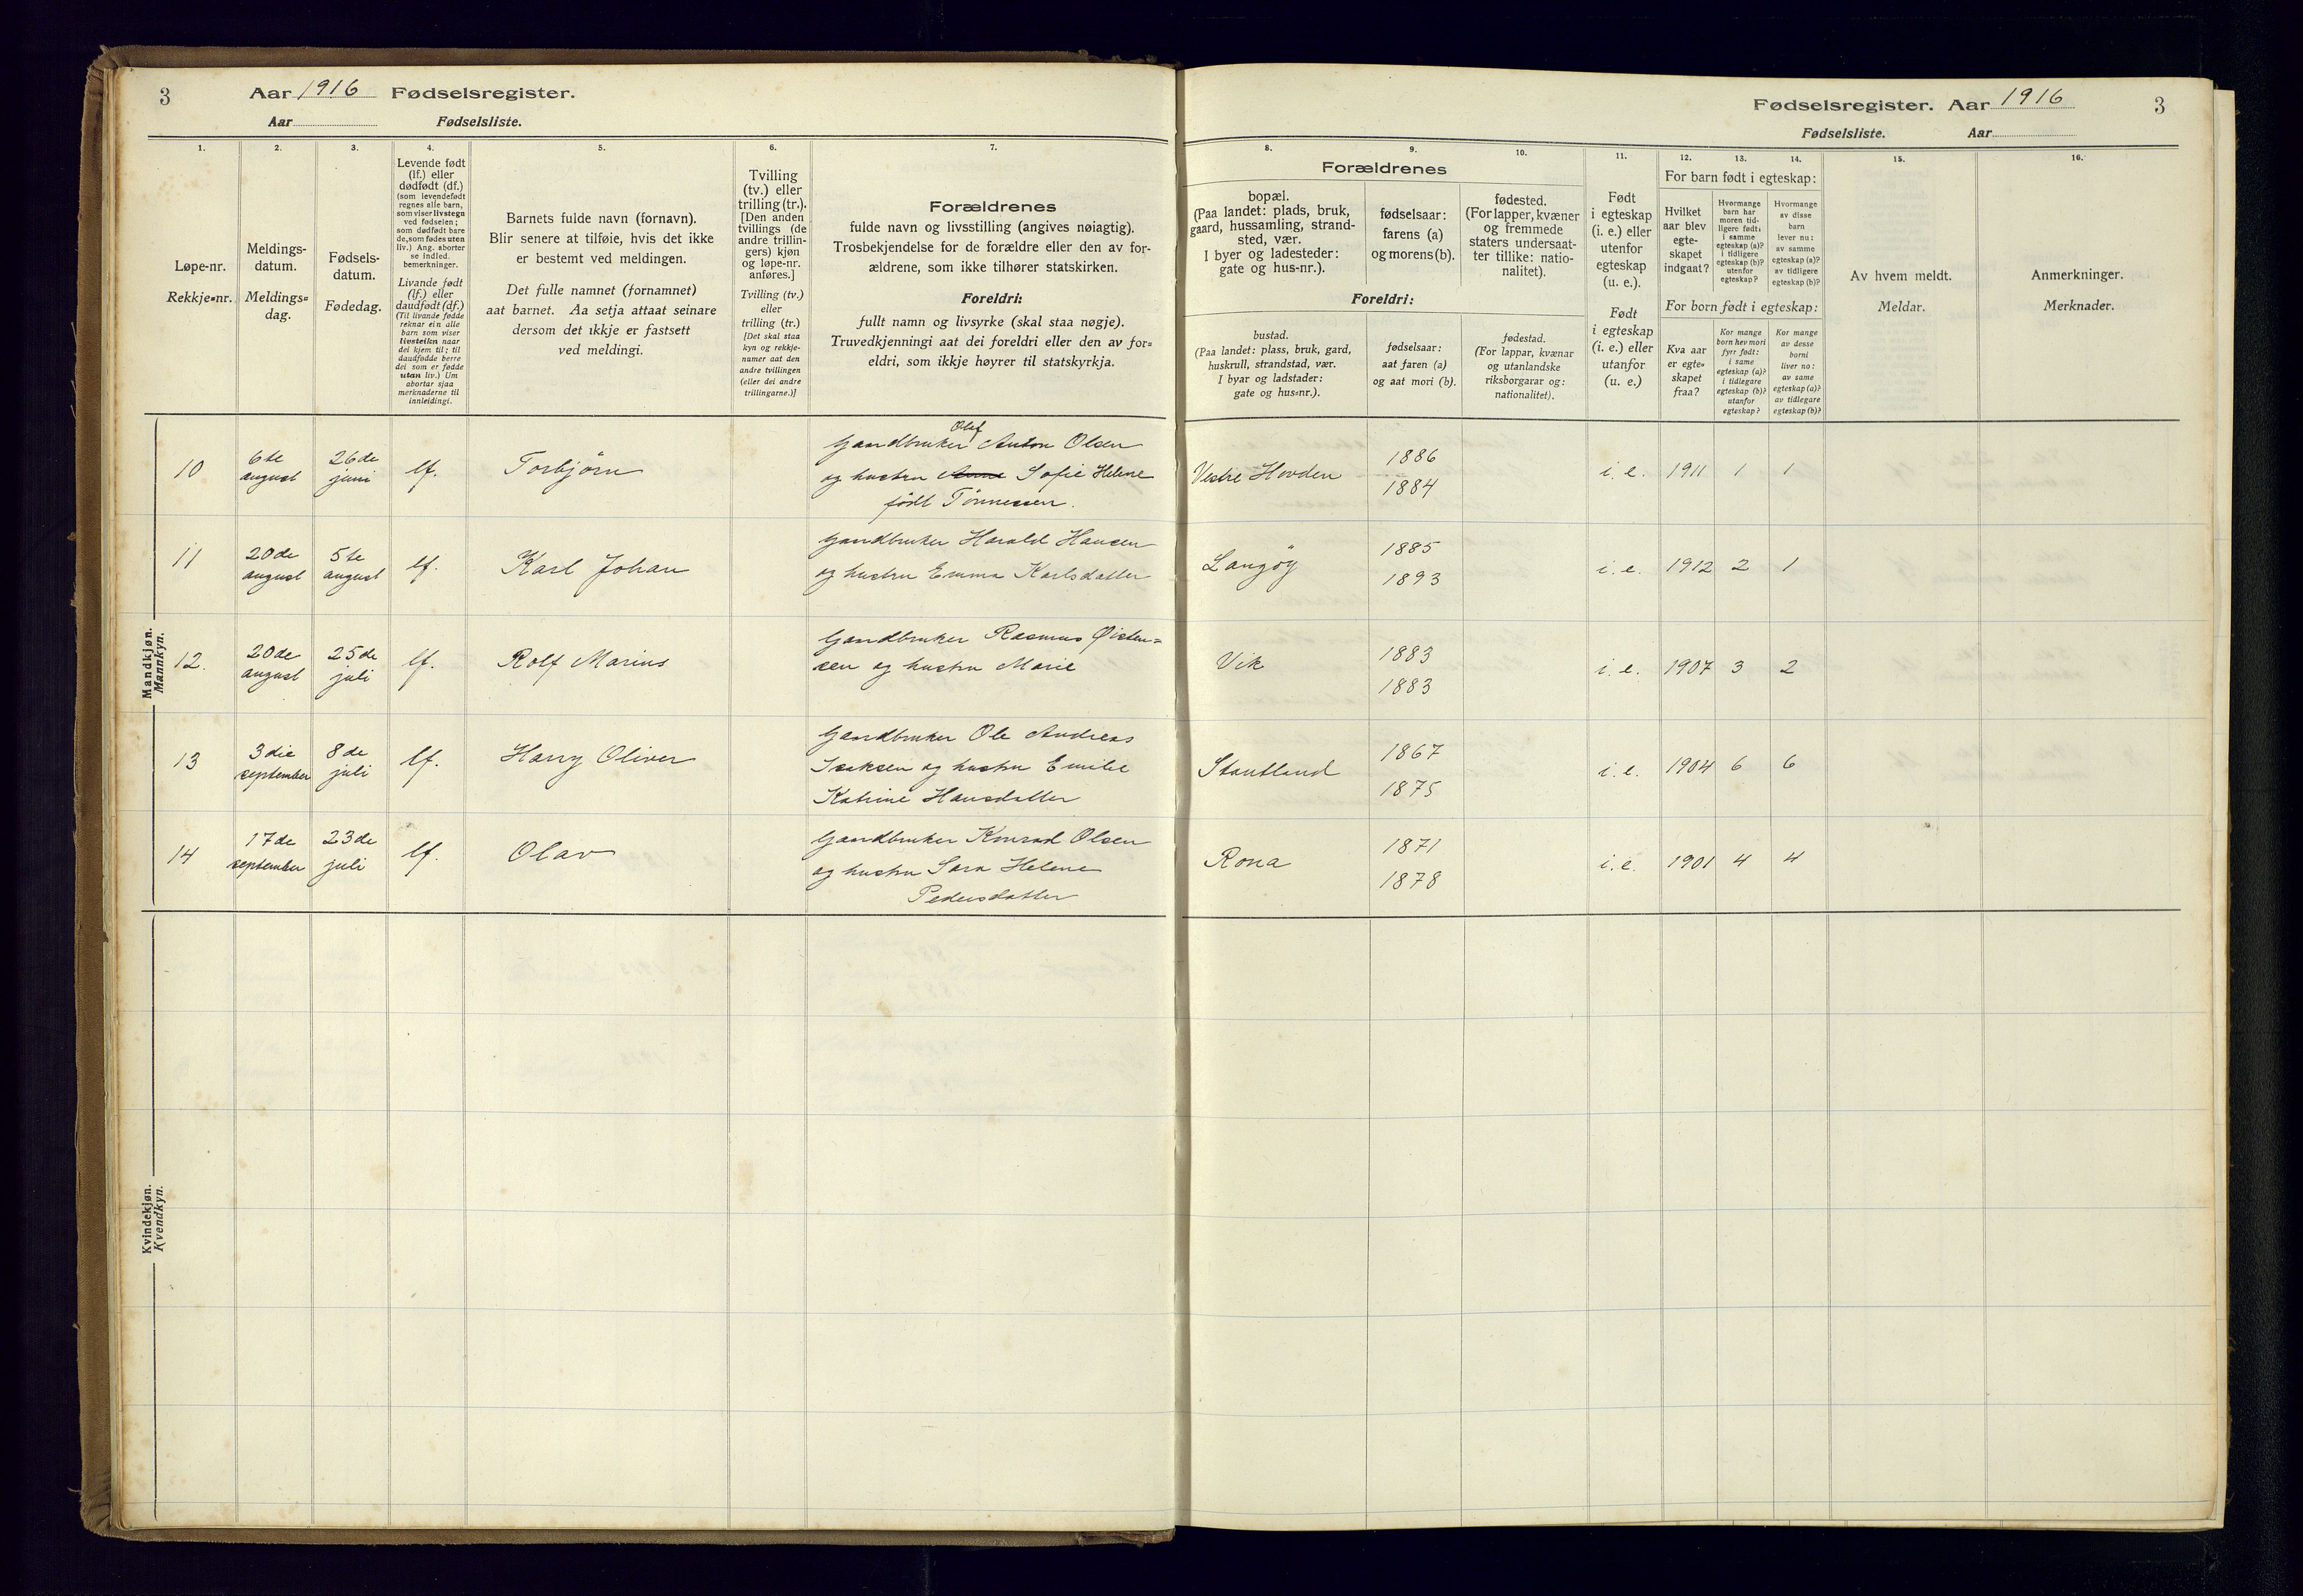 3
Aar 1916 Fødselsregister.
Aar Fødselsliste.
1.
2.
3.
4.
5.
6.
7.
Løpe-nr.
Rekkje=nr.
Meldings-
datum.
Meldings=
dag.
Fødsels-
datum.
Fødedag.
Levende født
(lf.) eller
dødfødt (df.)
(som levendefødt
regnes alle barn,
som viser livstegn
ved fødselen;
som dødfødt bare
de, som fødes uten
liv.) Ang. aborter
se indled.
bemerkninger.
Livande født
(lf.) eller
daudfødt (df.)
(Til livande fødde
reknar ein alle
barn som viser
livsteikn naar
dei kjem til; til
daudfødde berre
dei som er fødde
utan liv.) Um
abortar sjaa
merknaderne til
innleidingi.
Barnets fulde navn (fornavn).
Blir senere at tilføie, hvis det ikke
er bestemt ved meldingen.
Det fulle namnet (fornamnet)
aat barnet. Aa setja attaat seinare
dersom det ikkje er fastsett
ved meldingi.
Tvilling
(tv.) eller
trilling (tr.).
[Den anden
tvillings (de
andre trillin-
gers) kjøn
og løpe-nr.
anføres.]
Tvilling (tv.)
eller
trilling (tr.)
[Det skal staa
kyn og rekkje-
numer aat den
andre tvillingen
(eller dei andre
trillingarne.)]
Forældrenes
fulde navn og livsstilling (angives nøiagtig).
Trosbekjendelse for de forældre eller den av for-
ældrene, som ikke tilhører statskirken.
Foreldri:
fullt namn og livsyrke (skal staa nøgje).
Truvedkjenningi aat dei foreldri eller den av for=
eldri, som ikkje høyrer til statskyrkja.
Mandkjøn.
Mannkyn.
10
6te
august
26de
juni
lf.
Torbjörn
Olaf
Gaardbruker Anton Olsen
og hustru Anna Sofie Helene
født Tönnessen.
11
20de
august
5te
august
lf.
Karl Johan
Gaardbruker Harald Hansen
og hustru Emma Karlsdatter
12.
20de
august
25de
juli
lf.
Rolf Marius
Gaardbruker Rasmus Øisten=
sen og hustru Marie
13
3die
september
8de
juli
lf.
Harry Oliver
Gaardbruker Ole Andreas
Isaksen og hustru Emilie
Katrine Hansdatter
14
17de
september
23de
juli
lf.
Olav
Gaardbruker Konrad Olsen
og hustru Sara Helene
Pedersdatter
Kvindekjøn.
Kvendkyn.
Fødselsregister. Aar 1916
3
Fødselsliste. Aar
8.
9.
10.
11.
12.
13.
14.
15.
16.
Forældrenes
bopæl.
(Paa landet: plads, bruk,
gaard, hussamling, strand-
sted, vær.
I byer og ladesteder:
gate og hus-nr.).
fødselsaar:
farens (a)
og morens (b).
fødested.
(For lapper, kvæner
og fremmede
staters undersaat-
ter tillike: natio-
nalitet).
Foreldri:
bustad.
(Paa landet: plass, bruk, gard,
huskrull, strandstad, vær.
I byar og ladstader:
gate og hus=nr.).
fødselsaar:
aat faren (a)
og aat mori (b).
fødestad.
(For lappar, kvænar
og utanlandske
riksborgarar og:
nationalitet).
Født
i egteskap
(i. e.) eller
utenfor
egteskap
(u. e.).
Født
i egteskap
(i. e.) eller
utanfor
(u. e.)
For barn født i egteskap:
Hvilket
aar blev
egte-
skapet
indgaat?
Hvormange
barn har
moren tid-
ligere født:
i samme
egteskap (a)?
i tidligere
egteskap (b)?
utenfor
egteskap?
Hvormange
av disse
barn
lever nu:
av samme
egteskap (a)?
av tidligere
egteskap (b)?
For born født i egteskap:
Kva aar
er egte=
skapet
fraa?
Kor mange
born hev mori
fyrr født:
i same
egteskap (a)?
i tidlegare
egteskap (b)?
utanfor
egteskap?
Kor mange
av desse
borni
liver no:
av same
egteskap (a)?
av tidlegare
egteskap (b)?
Av hvem meldt.
Meldar.
Anmerkninger.
Merknader.
Vestre Hovden
1886
1884
i. e.
1911
1
1
Langöy
1885
1893
i. e.
1912
2
1
Vik
1883
1883
i. e.
1907
3
2
Stautland
1867
1875
i. e.
1904
6
6
Rona
1871
1878
i. e.
1901
4
4